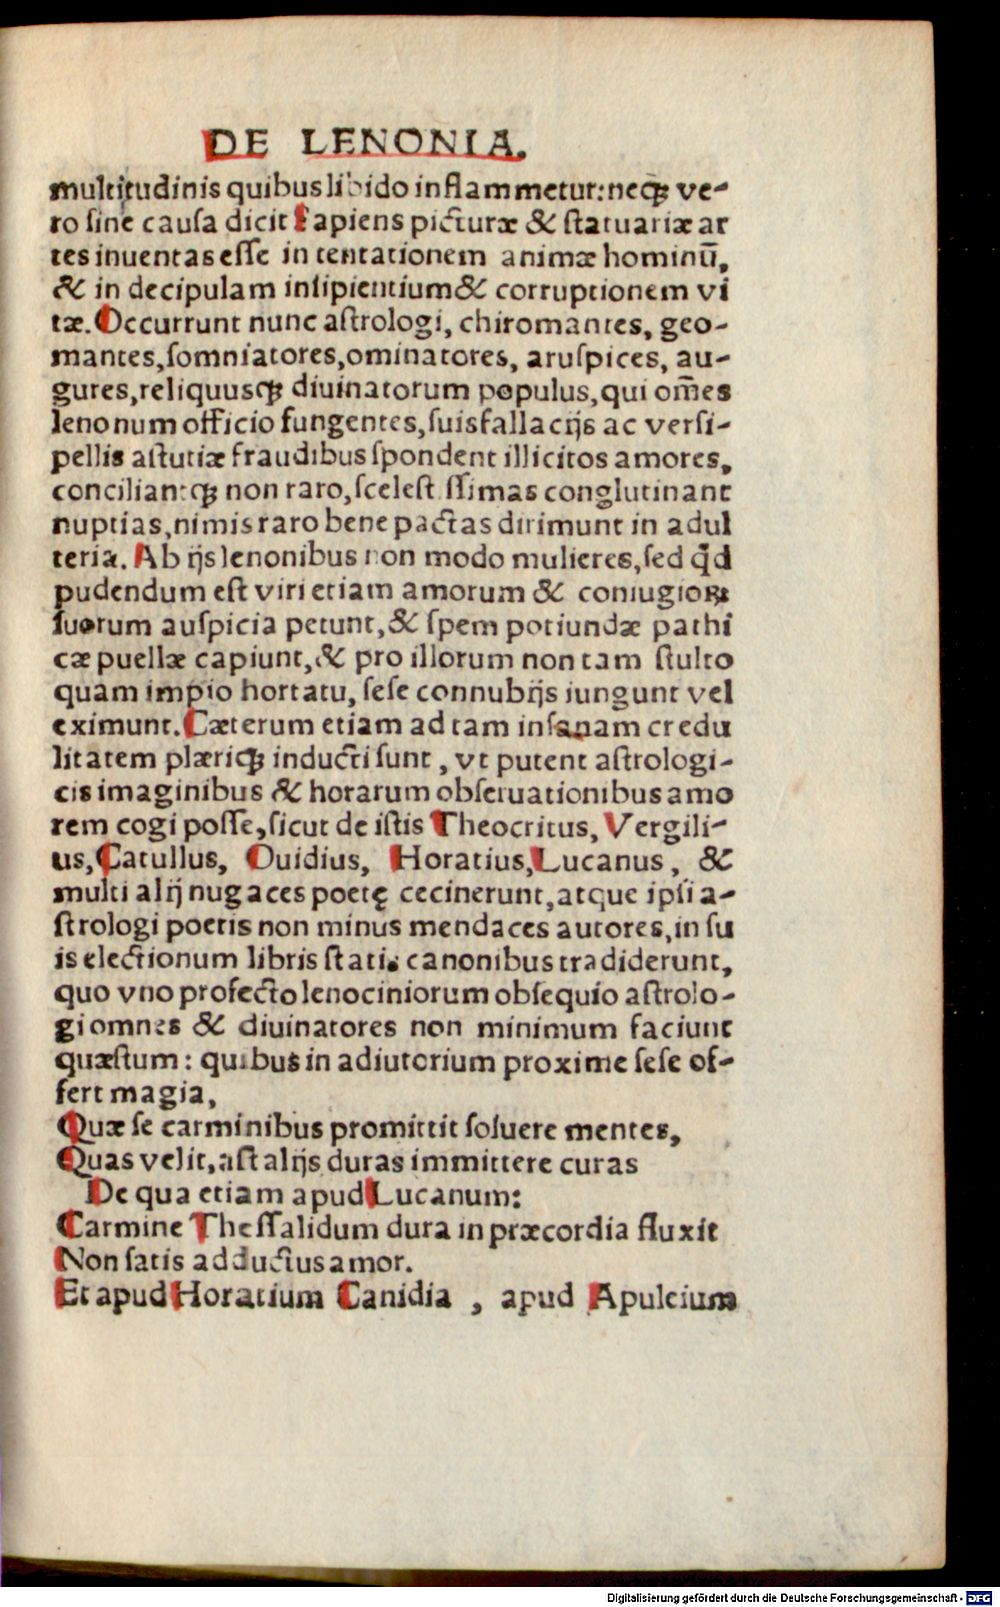 DE LENONIA.
multitudinis quibus libido inflammetur: neqꝫ ve-
ro sine causa dicit sapiens picturæ & statuariæ ar
tes inuentas esse in tentationem animæ hominū,
& in decipulam insipientium & corruptionem vi
tæ. Occurrunt nunc astrologi, chiromantes, geo-
mantes, somniatores, ominatores, aruspices, au-
gures, reliquusqꝫ diuinatorum populus, qui om̄es
lenonum officio fungentes, suis fallacijs ac versi-
pellis astutiæ fraudibus spondent illicitos amores,
conciliantqꝫ non raro, scelestissimas conglutinant
nuptias, nimis raro bene pactas dirimunt in adul
teria. Ab ijs lenonibus non modo mulieres, sed qd̄
pudendum est viri etiam amorum & coniugioꝝ
suorum auspicia petunt, & spem potiundæ pathi
cæ puellæ capiunt, & pro illorum non tam stulto
quam impio hortatu, sese connubijs iungunt vel
eximunt. Cæterum etiam ad tam insanam credu
litatem plæriqꝫ inducti sunt, vt putent astrologi-
cis imaginibus & horarum obseruationibus amo
rem cogi posse, sicut de istis Theocritus, Vergili-
us, Catullus, Ouidius, Horatius, Lucanus, &
multi alij nugaces poetę cecinerunt, atque ipsi a-
strologi poetis non minus mendaces autores, in su
is electionum libris statis canonibus tradiderunt,
quo vno profecto lenociniorum obsequio astrolo-
gi omnes & diuinatores non minimum faciunt
quæstum: quibus in adiutorium proxime sese of-
fert magia,
Quæ se carminibus promittit soluere mentes,
Quas velit, ast alijs duras immittere curas
De qua etiam apud Lucanum:
Carmine Thessalidum dura in præcordia fluxit
Non fatis adductus amor.
Et apud Horatium Canidia, apud Apuleium
Digitalisierung gefördert durch die Deutsche Forschungsgemeinschaft - DFG